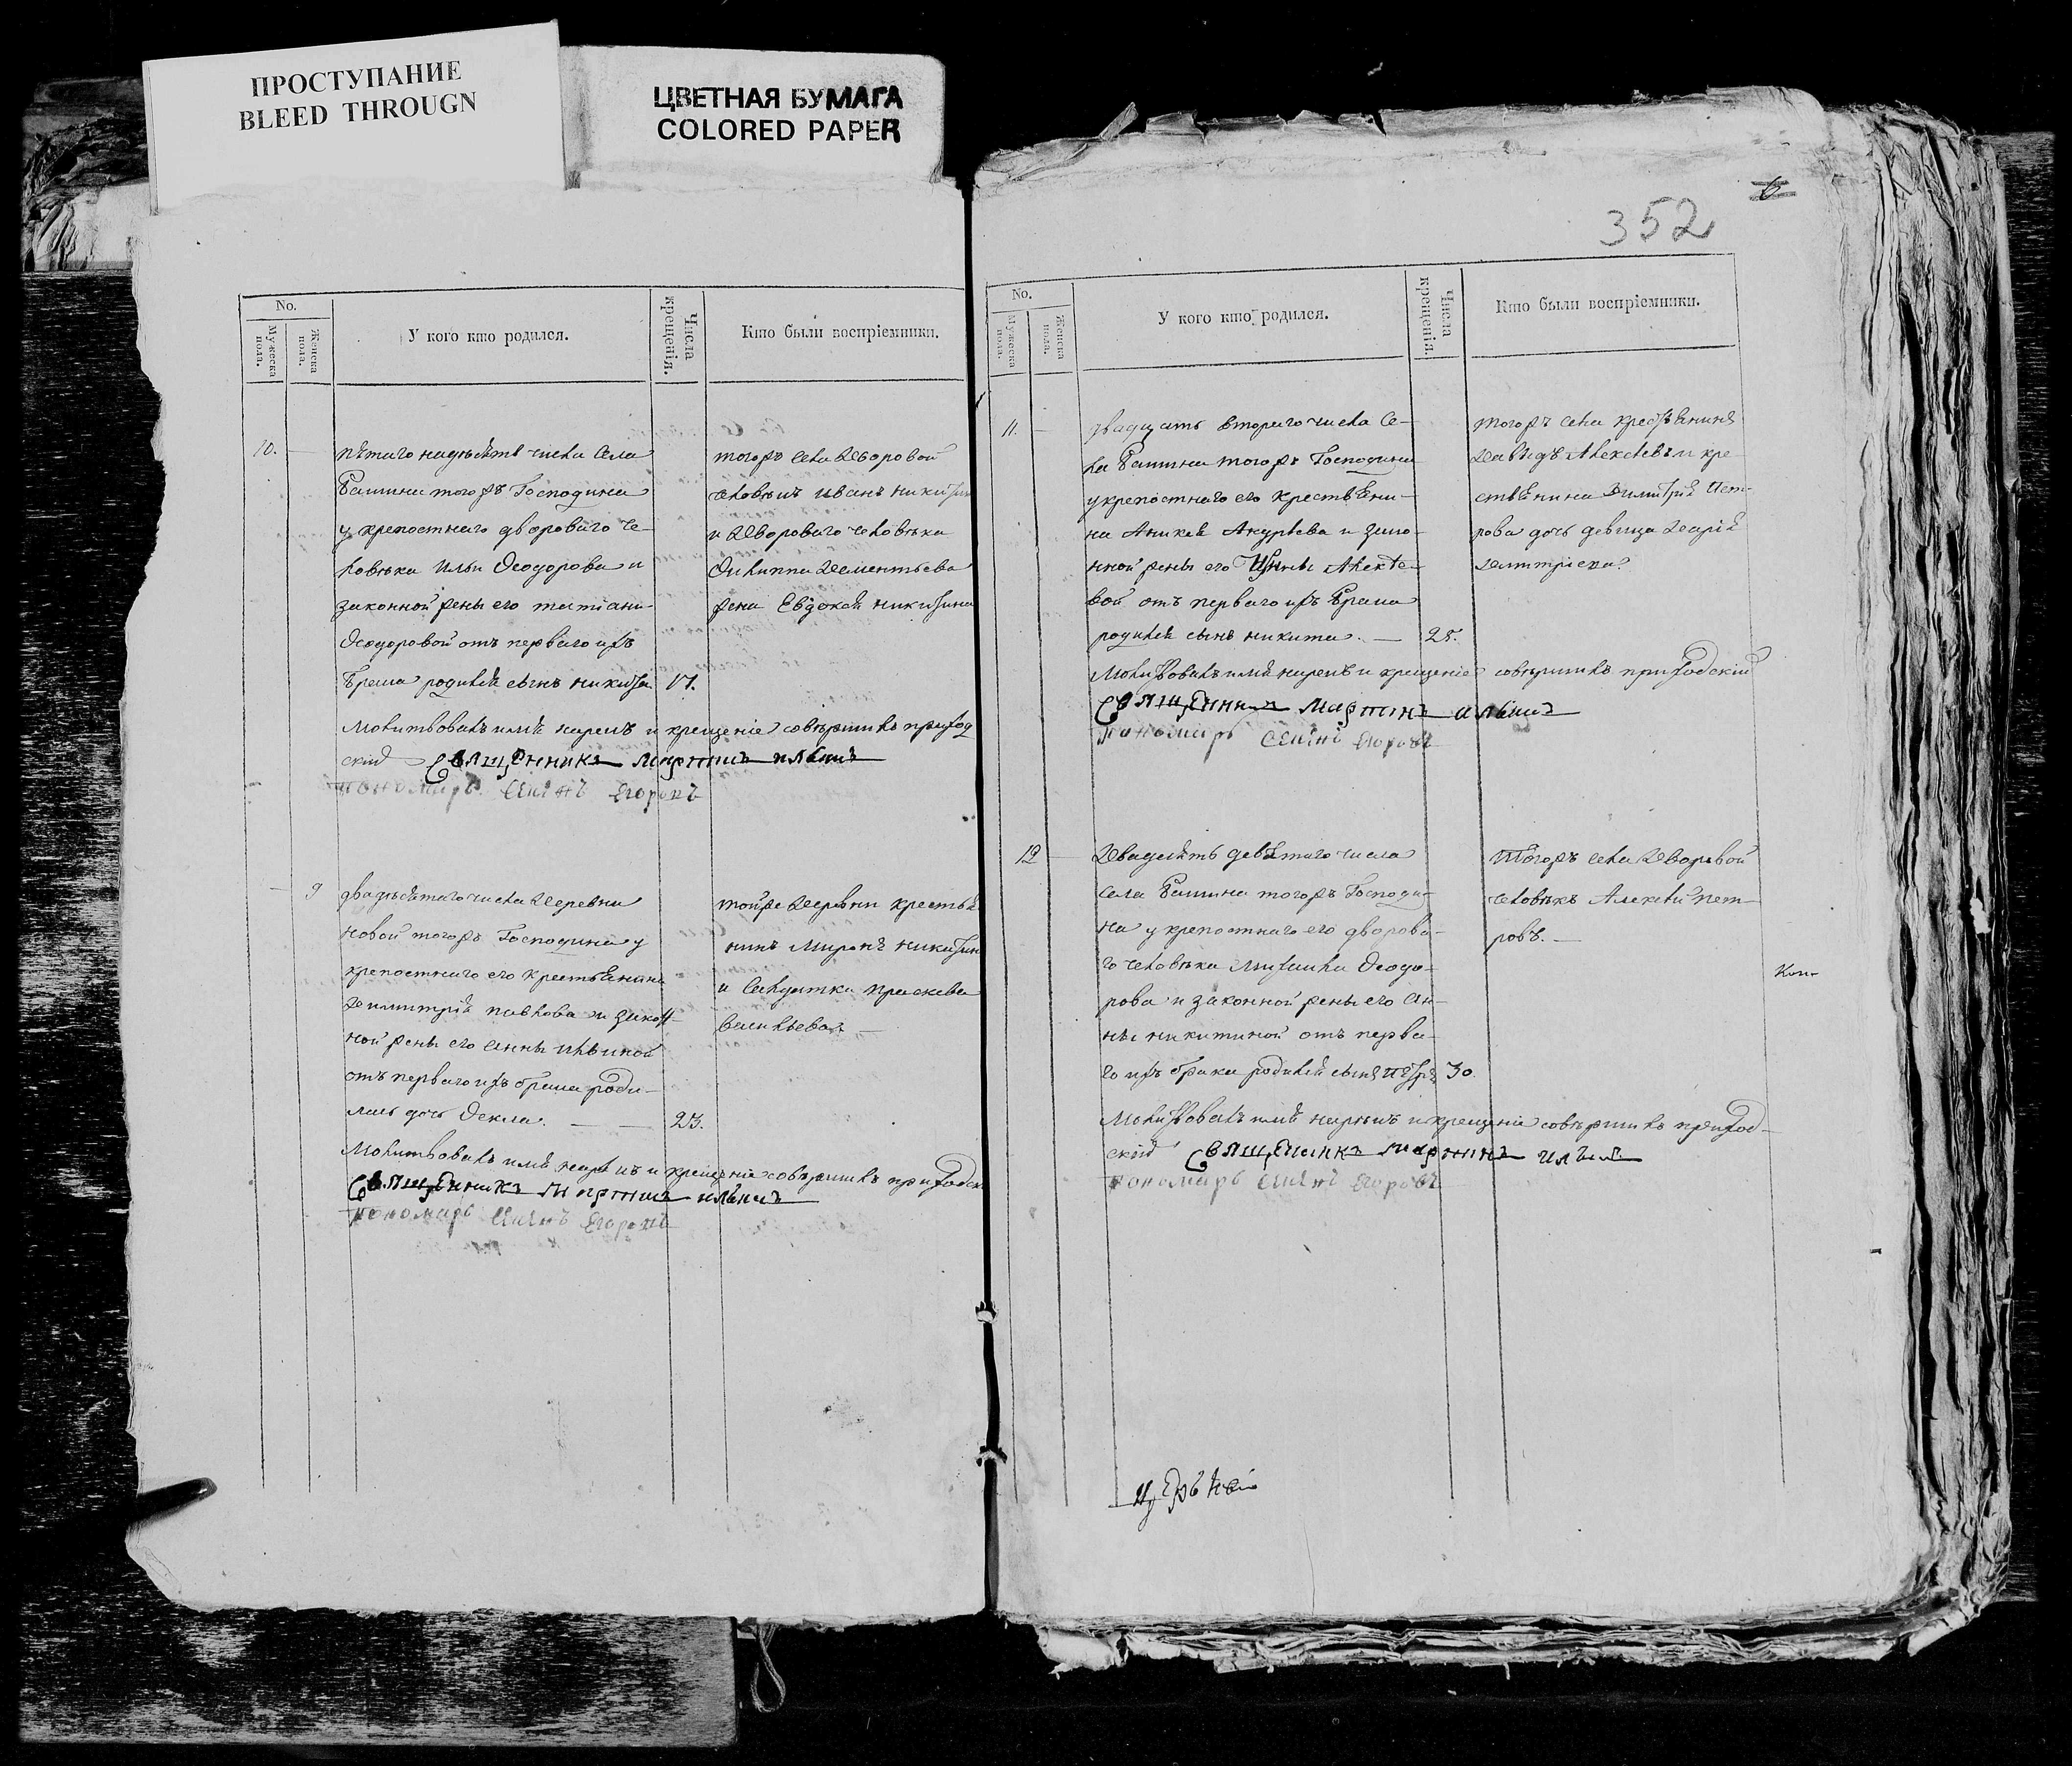 ПРОСТУПАНИЕ
BLEED THROUGN
ЦВЕТНАЯ БУМАГА
COLORED PAPER
No.
Мужеска пола.
Женска пола.
У кого кто родился.
Числа крещенія.
Кто были воспріемники.
10.
пѣтаго надѣсѣтъ числа села
тогожъ Господина
у крепостнаго двороваго че-
ловѣка Ильи Ѳеодорова и
законной жены его татіаны
Ѳеодоровой отъ перваго ихъ
брака родилсѣ сынъ никита 17.
тогожъ села Дворовой
человѣкъ иванъ никитин
и Двороваго человѣка
Филиппа Дементьева
жена Евдокѣѣ никитина
Молитвовалъ имѣ нарекъ и крещеніе совѣршилъ приход
скій Священникъ мартинъ ильинъ
пономарь Егоровъ
9
двадцѣтаго числа Деревни
новой тогожъ Господина у
крепостнаго его крестьѣнина
Димитріѣ павлова и закон
ной жены его анны
отъ перваго ихъ брака роди-
лась дочь Ѳекла. 23.
тойже Деревни крестьѣ
нинъ Миронъ никитин
и Салдатка прасковѣ
васильева. —
Молитвовалъ имѣ нарекъ и крещѣніе совѣршилъ приходск
Священникъ мартинъ ильинъ
пономарь Егоровъ
352
6
No.
Мужеска пола.
Женска пола.
У кого кто родился.
Числа крещенія.
Кто были воспріемники.
11.
двадцать втораго числа се-
ла тогожъ Господина
у крепостнаго его крестьѣни-
на Аникеѣ Андрѣева и зако-
нной жены его Алексѣе-
вой отъ перваго ихъ брака
родилсѣ сынъ никита. — 25.
тогожъ села крестьѣнинъ
Давыдъ Алексѣевъ и кре
стьѣнина Димитріѣ Пет-
рова дочь девица Маріѣ
Молитвовалъ имѣ нарекъ и крещеніе совѣршилъ приходскій
Священникъ мартинъ ильинъ
пономарь Егоровъ
12
Двадесѣть девѣтаго числа
села тогожъ Господи-
на у крепостнаго его дворова-
го человѣка Михаила Ѳеодо-
рова и законной жены его Ан-
ны никитиной отъ перва-
го ихъ брака родилсѣ сынъ пѣтръ 30.
тогожъ села Дворовой
человѣкъ Алексѣй Пет-
ровъ. —
Молитвовалъ имѣ нарекъ и крещеніе совѣршилъ приход-
скій Священникъ мартинъ ильинъ
пономарь Егоровъ